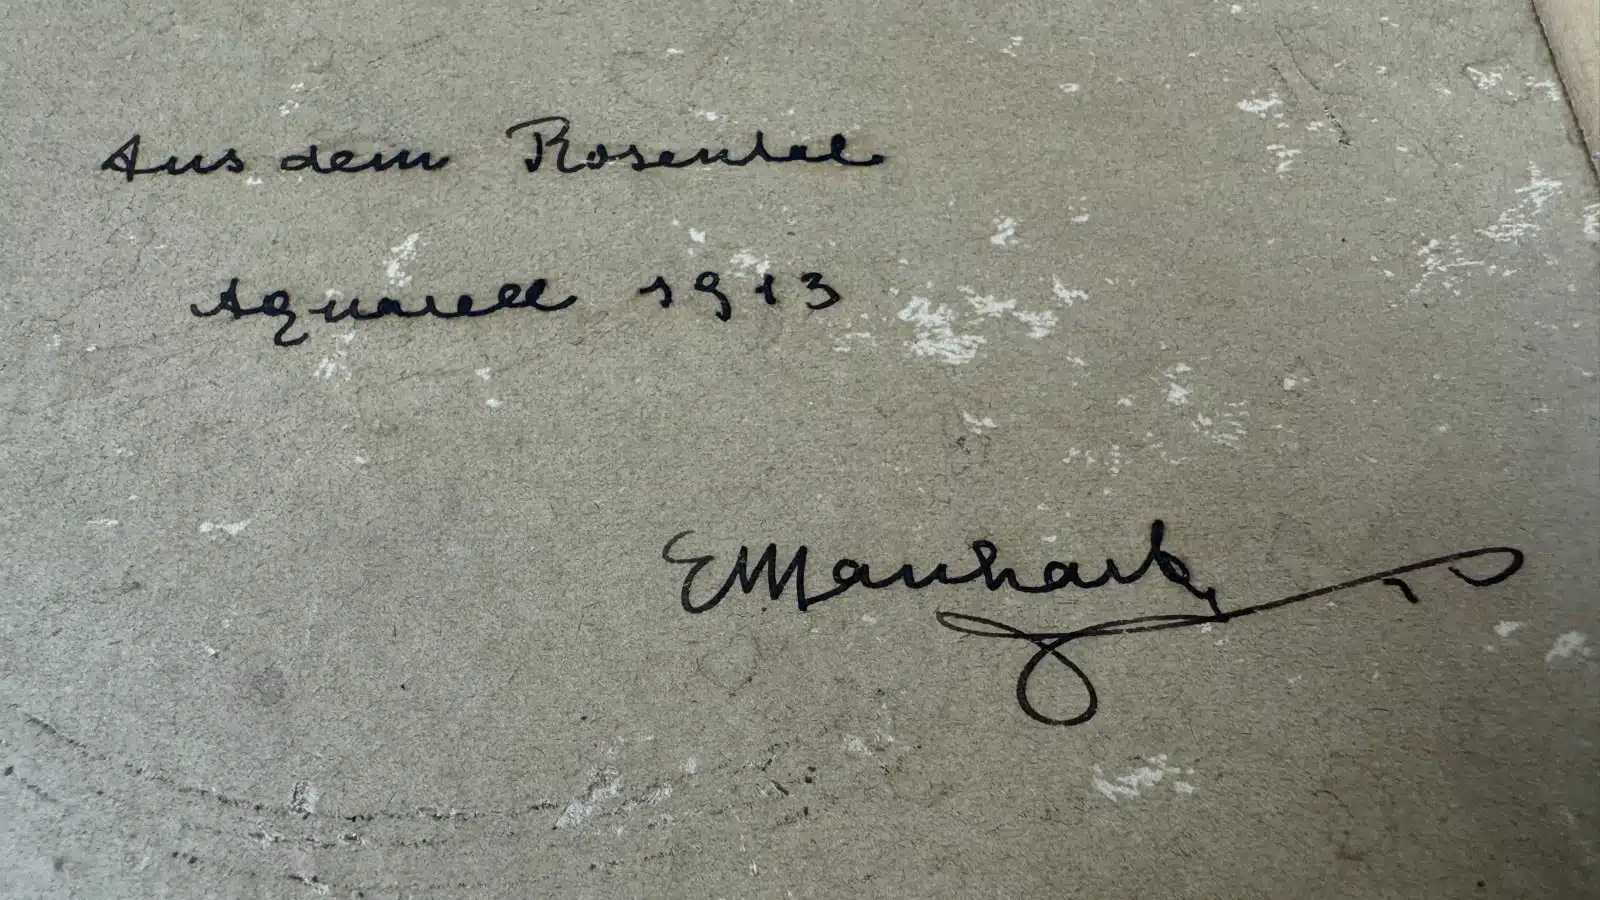 Aus dem Rosental
Aquarell 1913
EManhart